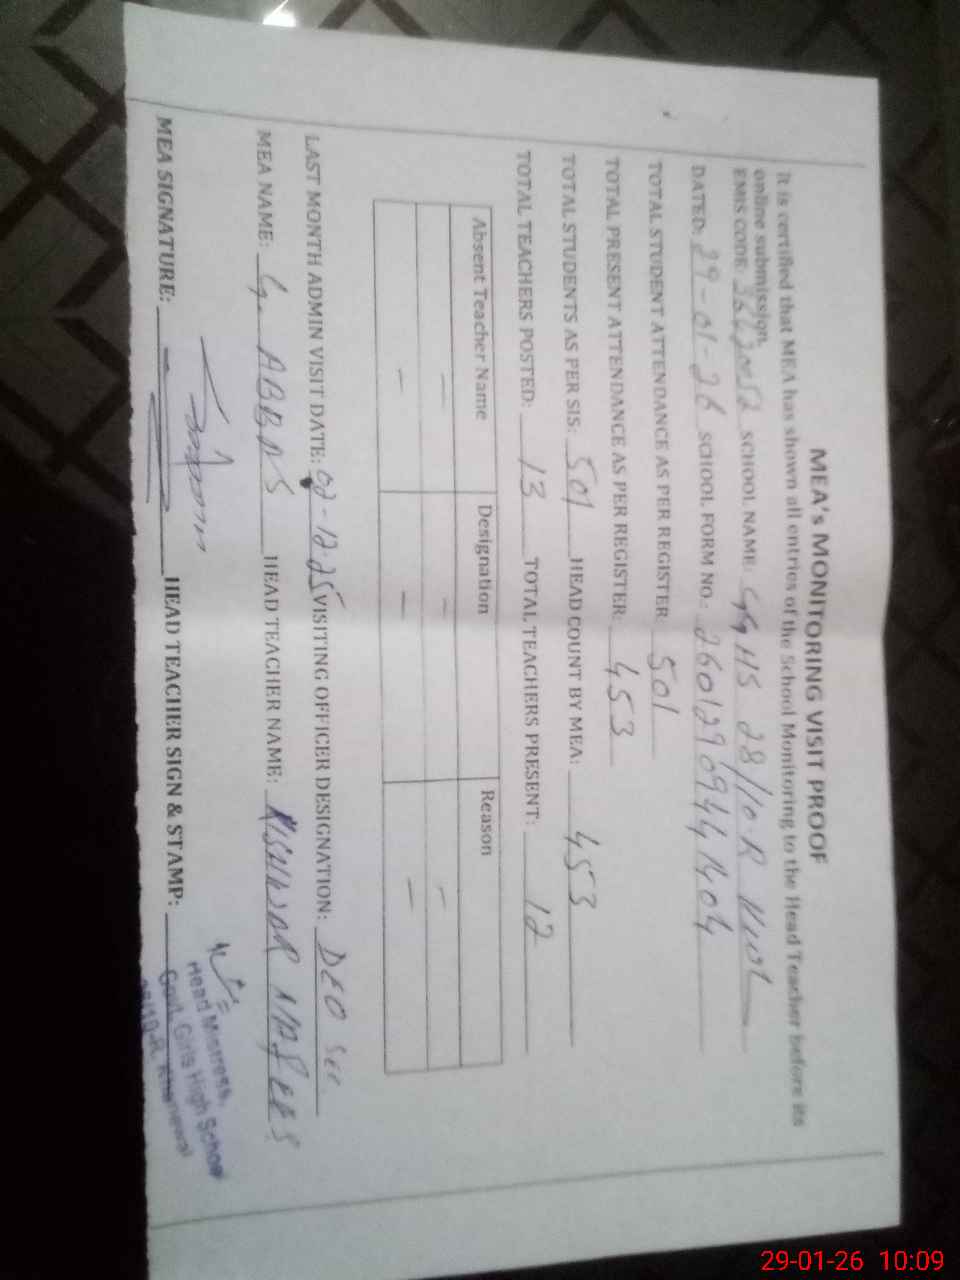 MEA's MONITORING VISIT PROOF
It is certified that MEA has shown all entries of the School Monitoring to the Head Teacher before its
online submission.
EMIS CODE: SCHOOL NAME: GGHS 28/10-R
DATED: 29-01-26 SCHOOL FORM NO.: 26012909441404
TOTAL STUDENT ATTENDANCE AS PER REGISTER 501
TOTAL PRESENT ATTENDANCE AS PER REGISTER: 453
TOTAL STUDENTS AS PER SIS: 501 HEAD COUNT BY MEA: 453
TOTAL TEACHERS POSTED: 13 TOTAL TEACHERS PRESENT: 12
Absent Teacher Name Designation Reason
— — —
— — —
LAST MONTH ADMIN VISIT DATE: 02-12-25 VISITING OFFICER DESIGNATION: DEO SEC
MEA NAME: G. ABBAS HEAD TEACHER NAME: KISHWAR NAFEES
MEA SIGNATURE: HEAD TEACHER SIGN & STAMP:
Head Mistress,
Govt. Girls High School
28/10-R, Khanewal
29-01-26 10:09